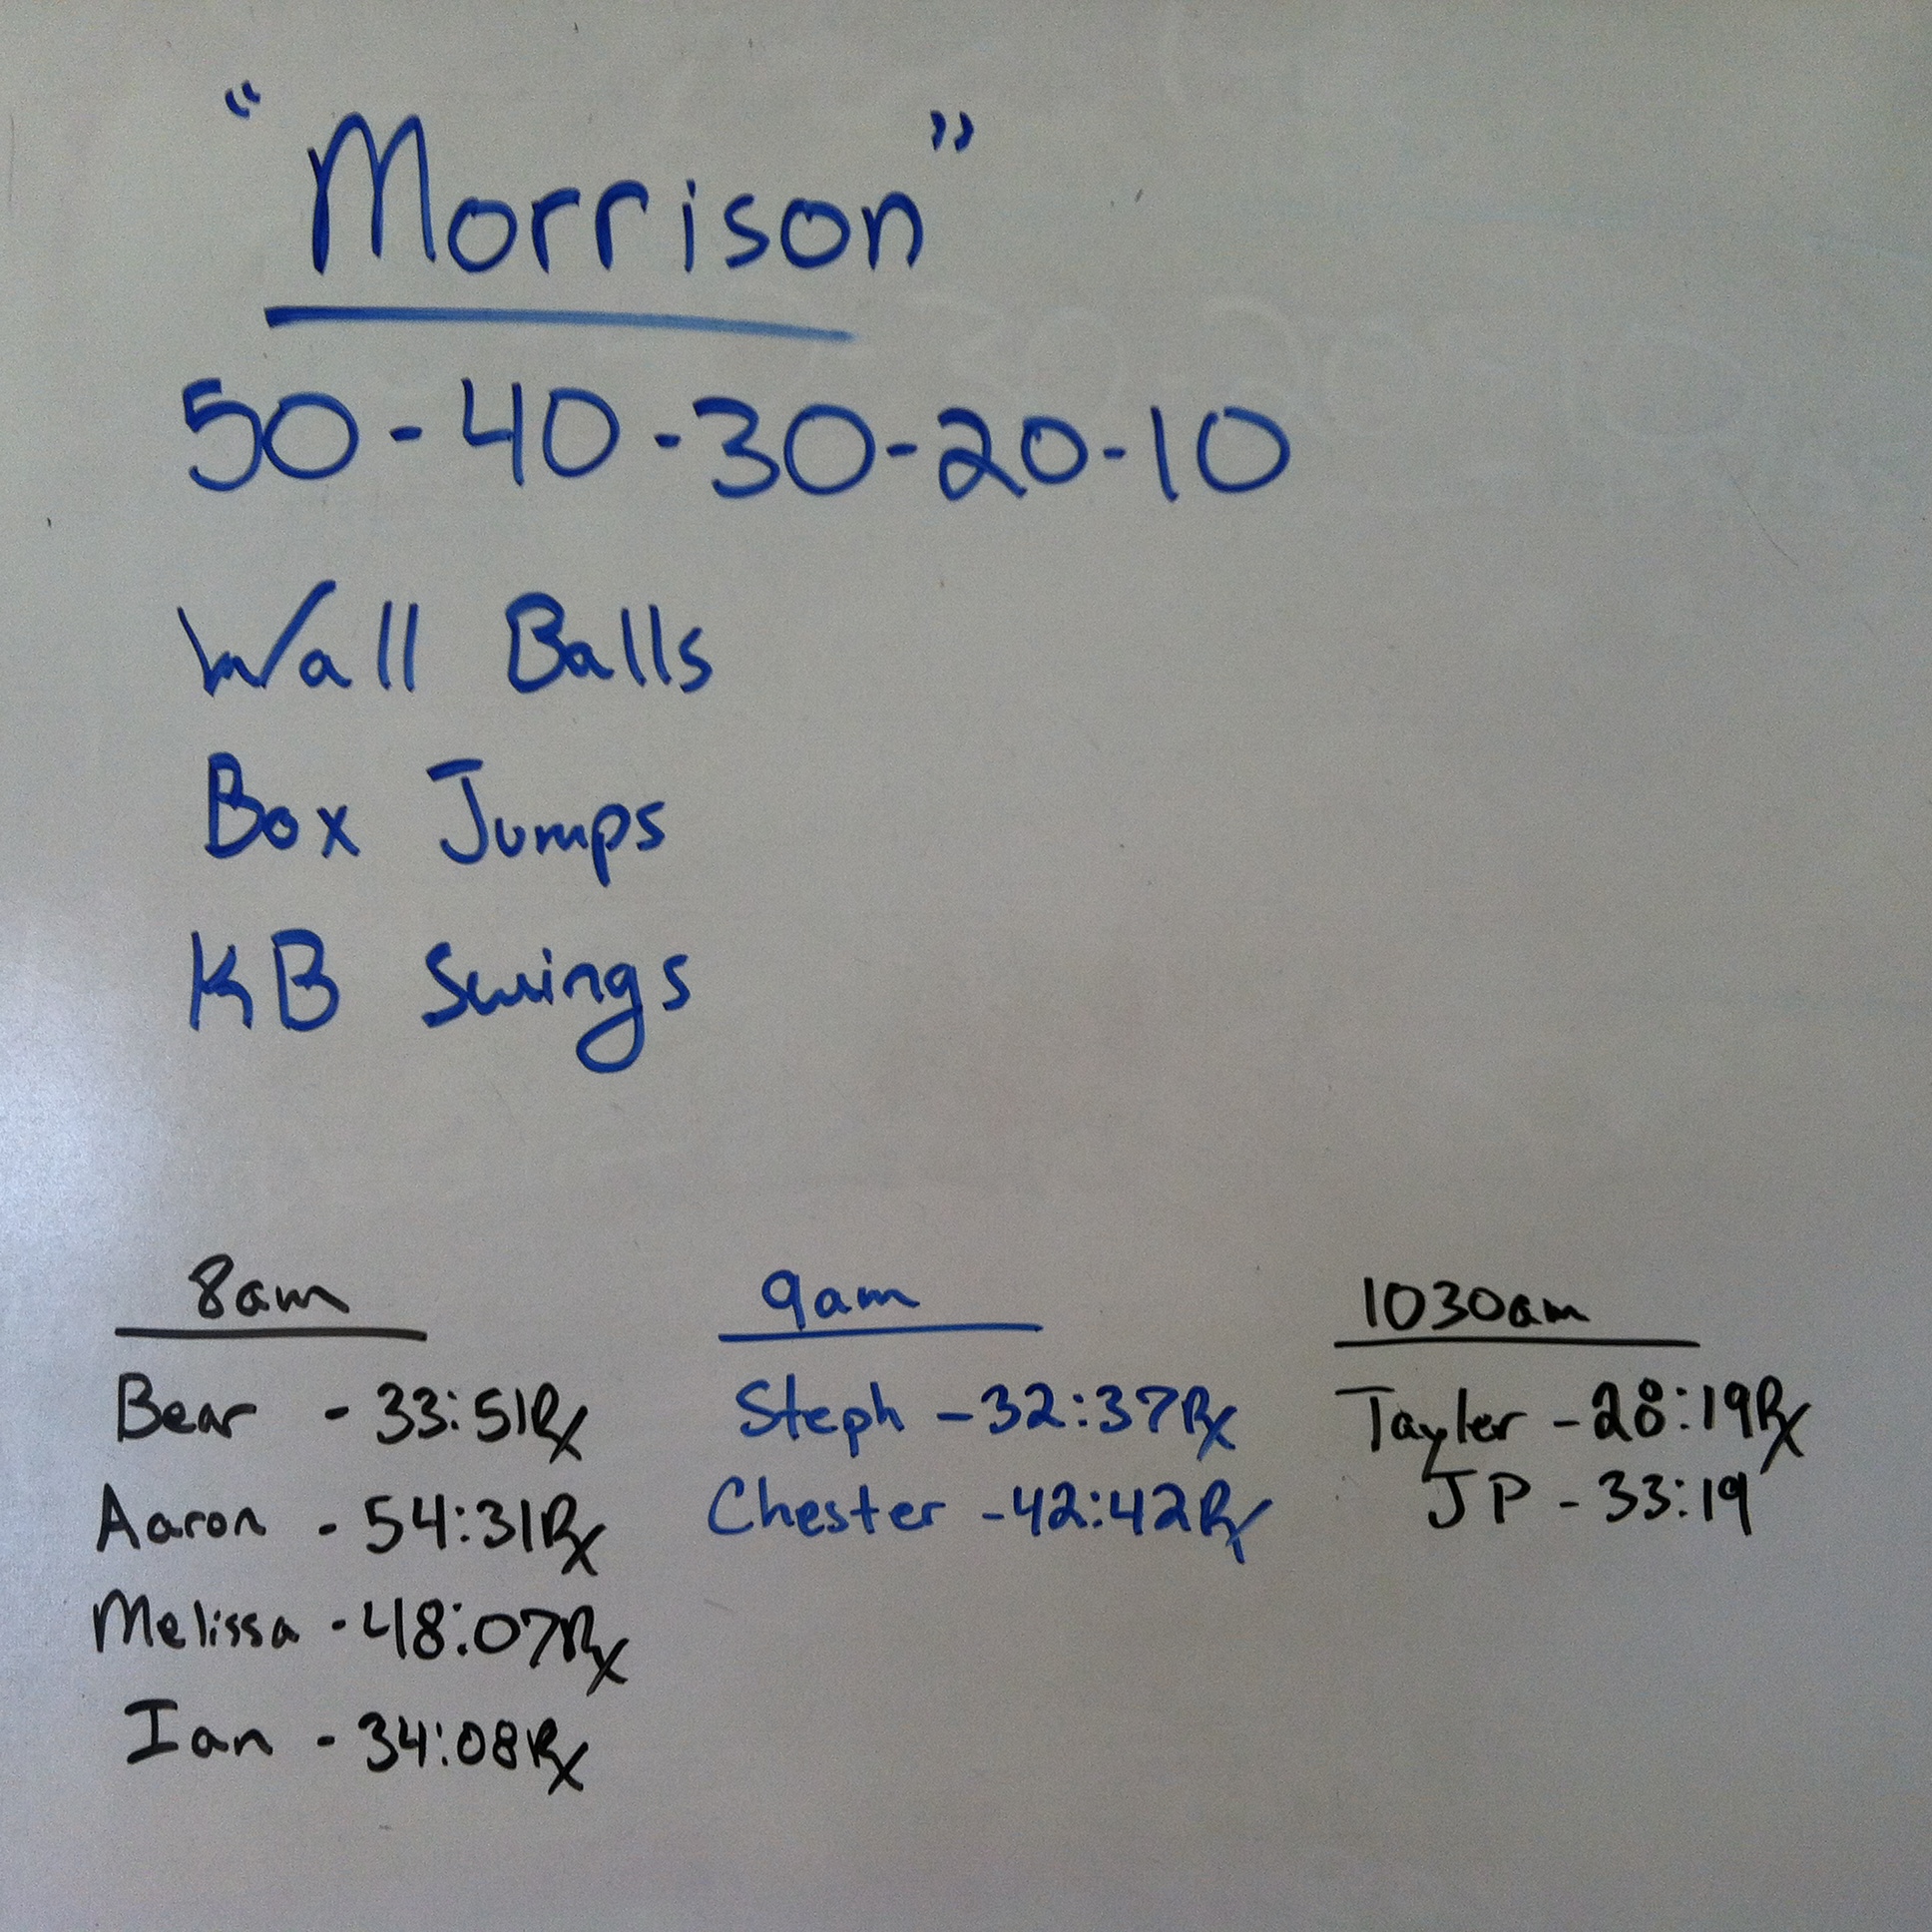 "Morrison"
50-40-30-20-10
Wall Balls
Box Jumps
KB Swings
8am
Bear - 33:51Rx
Aaron - 54:31Rx
Melissa - 48:07Rx
Ian - 34:08Rx
9am
Steph - 32:37Rx
Chester - 42:42Rx
1030am
Tayler - 28:19Rx
JP - 33:19